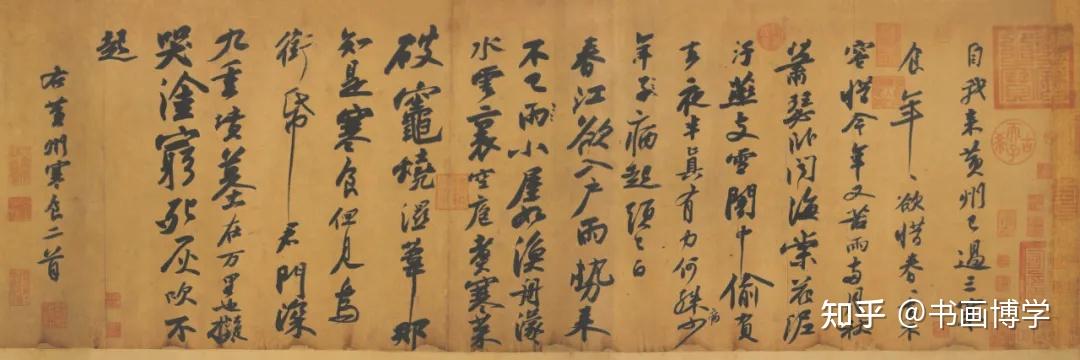 自我来黄州已過三寒
食年〻欲惜春〻去不
容惜今年又苦雨兩月秋
蕭瑟卧聞海棠花泥
汙燕支雪闇中偷負
去夜半真有力何殊病少
年子病起須已白
春江欲入户雨勢来
不已雨小屋如漁舟濛〻
水雲裏空庖煮寒菜
破竈燒濕葦那
知是寒食但見烏
銜帋君門深
九重墳墓在万里也擬
哭塗窮死灰吹不
起
右黄州寒食二首
知乎 @书画博学